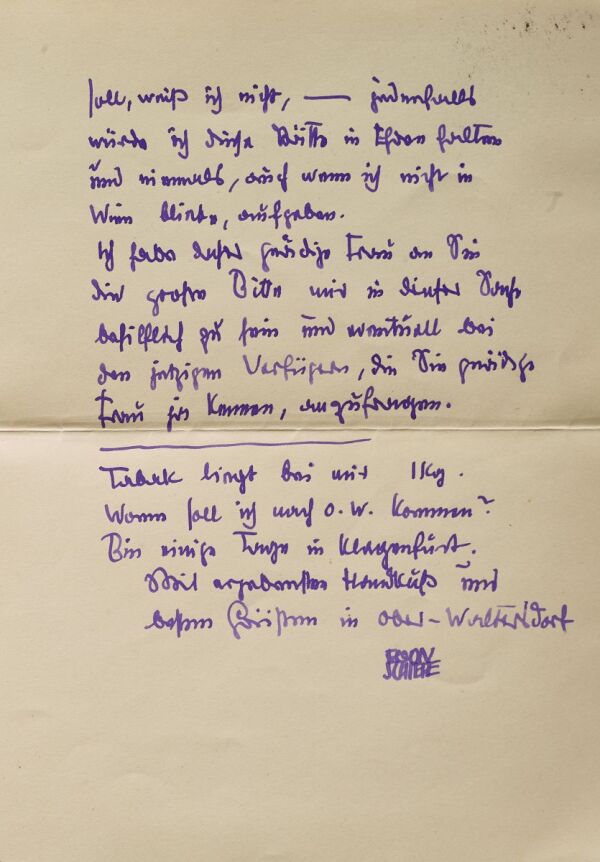 soll, weiß ich nicht, — jedenfalls
würde ich diese Bitte in Ehren halten
und niemals, auch wenn ich nicht in
Wien bliebe, aufgeben.
Ich habe daher gnädige Frau an Sie
die große Bitte mir in dieser Sache
behilflich zu sein und eventuell bei
den jetzigen Verfügern, die Sie gnädige
Frau ja kennen, anzufragen.
Tabak liegt bei mir 1 Kg.
Wann soll ich nach O. W. kommen?
Bin einige Tage in Klagenfurt.
Mit ergebensten Handkuß und
besten Grüßen in Ober-Waltersdorf
EGON
SCHIELE